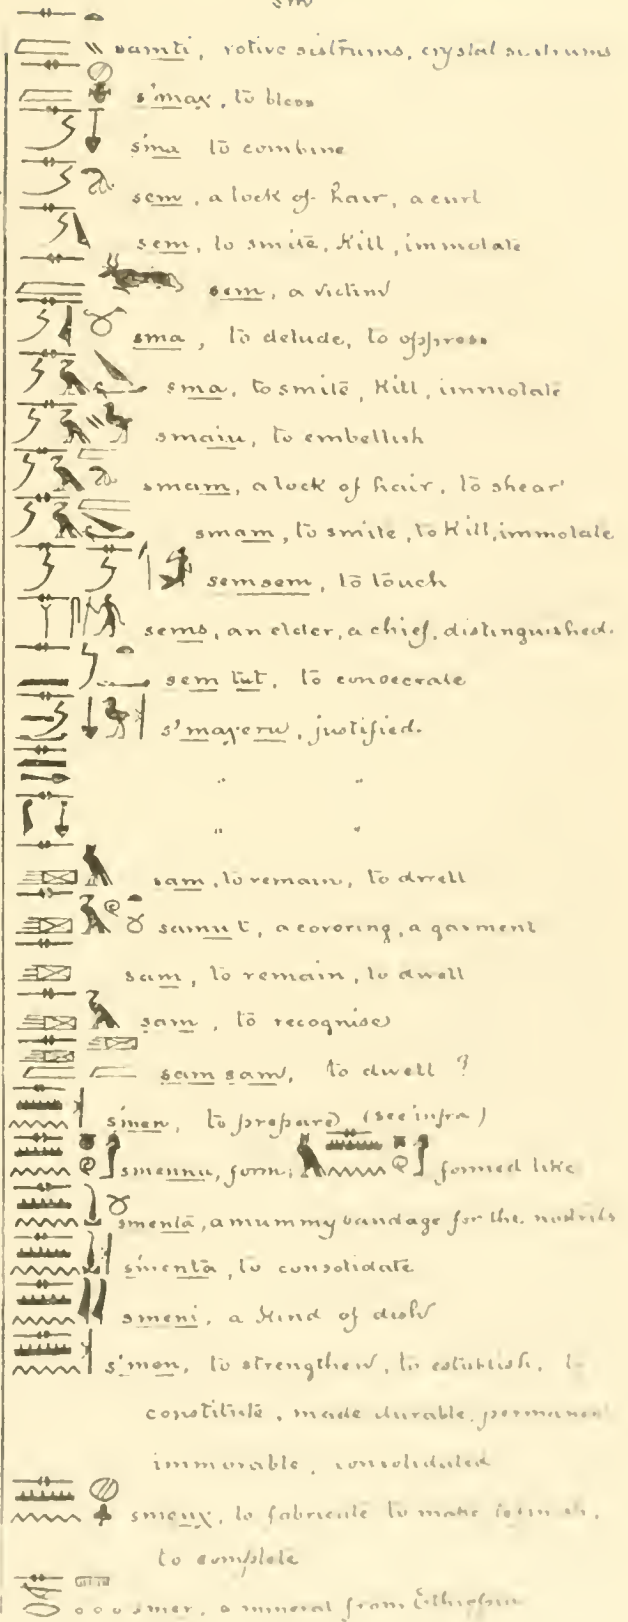 sm
samti, votive sistrums, crystal sistrums
s'maχ, to bless
s'ma to combine
sem, a lock of hair, a curl
sem, to smite, kill, immolate
sem, a victim
sma, to delude, to oppress
sma, to smite, kill, immolate
smaiu, to embellish
smam, a lock of hair, to shear
smam, to smite, to kill, immolate
semsem, to touch
sems, an elder, a chief, distinguished.
sem tut, to consecrate
s'maχeru, justified.
" "
" "
sam, to remain, to dwell
samut, a covering, a garment
sam, to remain, to dwell
sam, to recognise
sam sam, to dwell ?
s'men, to prepare (see infra)
smennu, form; formed like
smentā, a mummy bandage for the nostrils
s'mentā, to consolidate
smeni, a kind of dish
s'men, to strengthen, to establish, to
constitute, made durable, permanent
immovable, consolidated
smenχ, to fabricate to make
to complete
smer, a mineral from Ethiopia